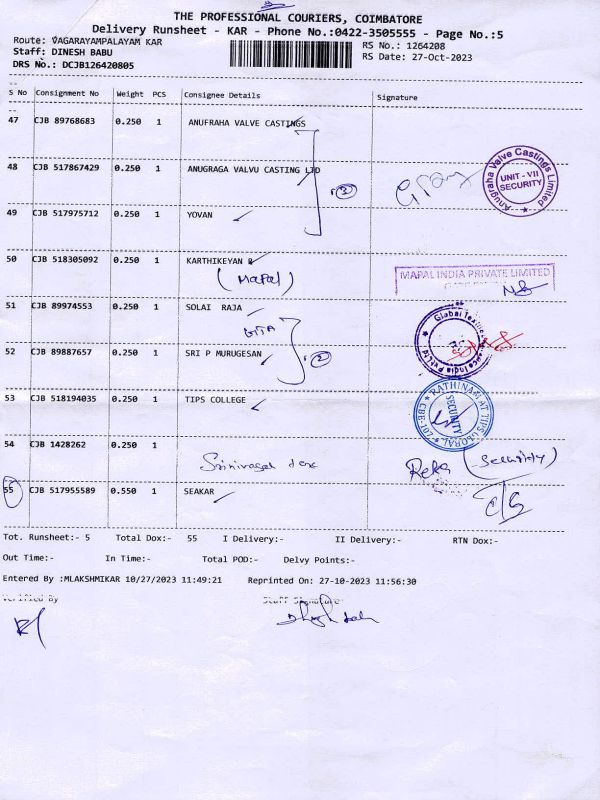 THE PROFESSIONAL COURIERS, COIMBATORE
Delivery Runsheet - KAR - Phone No.:0422-3505555 - Page No.:5
Route: VAGARAYAMPALAYAM KAR
RS No.: 1264208
Staff: DINESH BABU
RS Date: 27-Oct-2023
DRS No.: DCJB126420805
S No Consignment No Weight PCS Consignee Details Signature
47 CJB 89768683 0.250 1 ANUFRAHA VALVE CASTINGS
48 CJB 517867429 0.250 1 ANUGRAGA VALVU CASTING LTD
3
Anugraha Valve Castings Limited
UNIT - VII
SECURITY
49 CJB 517975712 0.250 1 YOVAN
50 CJB 518305092 0.250 1 KARTHIKEYAN R
(Mapal)
MAPAL INDIA PRIVATE LIMITED
51 CJB 89974553 0.250 1 SOLAI RAJA
52 CJB 89887657 0.250 1 SRI P MURUGESAN
2
53 CJB 518194035 0.250 1 TIPS COLLEGE
RATHINAM AT TIPS GLOBAL
SECURITY
54 CJB 1428262 0.250 1
(Security)
55 CJB 517955589 0.550 1 SEAKAR
Tot. Runsheet:- 5 Total Dox:- 55 I Delivery:- II Delivery:- RTN Dox:-
Out Time:- In Time:- Total POD:- Delvy Points:-
Entered By :MLAKSHMIKAR 10/27/2023 11:49:21 Reprinted On: 27-10-2023 11:56:30
Verified By Staff Signature